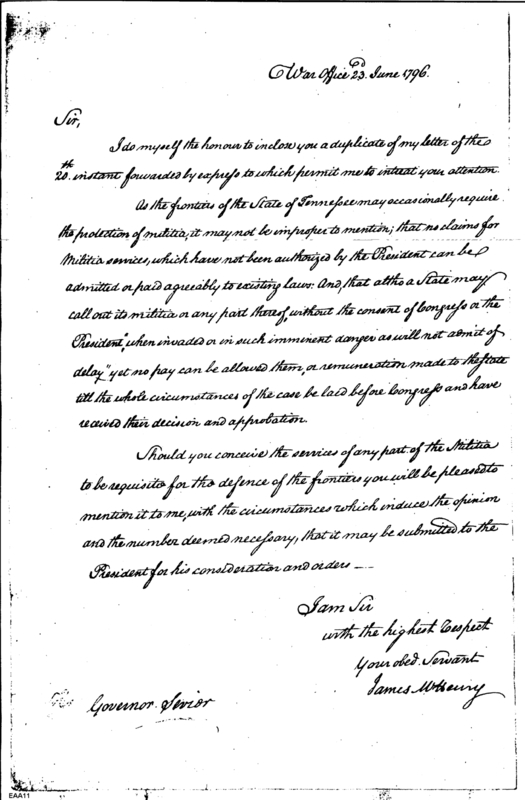 War Office 23d. June 1796.
Sir,
I do myself the honour to inclose you a duplicate of my letter of the
20th. instant forwarded by express to which permit me to intreat your attention.
As the frontiers of the State of Tennessee may occasionally require
the protection of militia, it may not be improper to mention; that no claims for
Militia services, which have not been authorized by the President can be
admitted or paid agreeably to existing laws. And, that altho a State may
call out its militia or any part thereof, without the consent of Congress or the
President, "when invaded or in such imminent danger as will not admit of
delay" yet no pay can be allowed them, or remuneration made to the State
till the whole circumstances of the case be laid before Congress and have
received their decision and approbation.
Should you conceive the services of any part of the Militia
to be requisite for the defence of the frontiers you will be pleased to
mention it to me, with the circumstances which induce the opinion
and the number deemed necessary, that it may be submitted to the
President for his consideration and orders —
I am Sir
with the highest respect
Your obed. Servant
James McHenry
Governor Sevier
EAA11